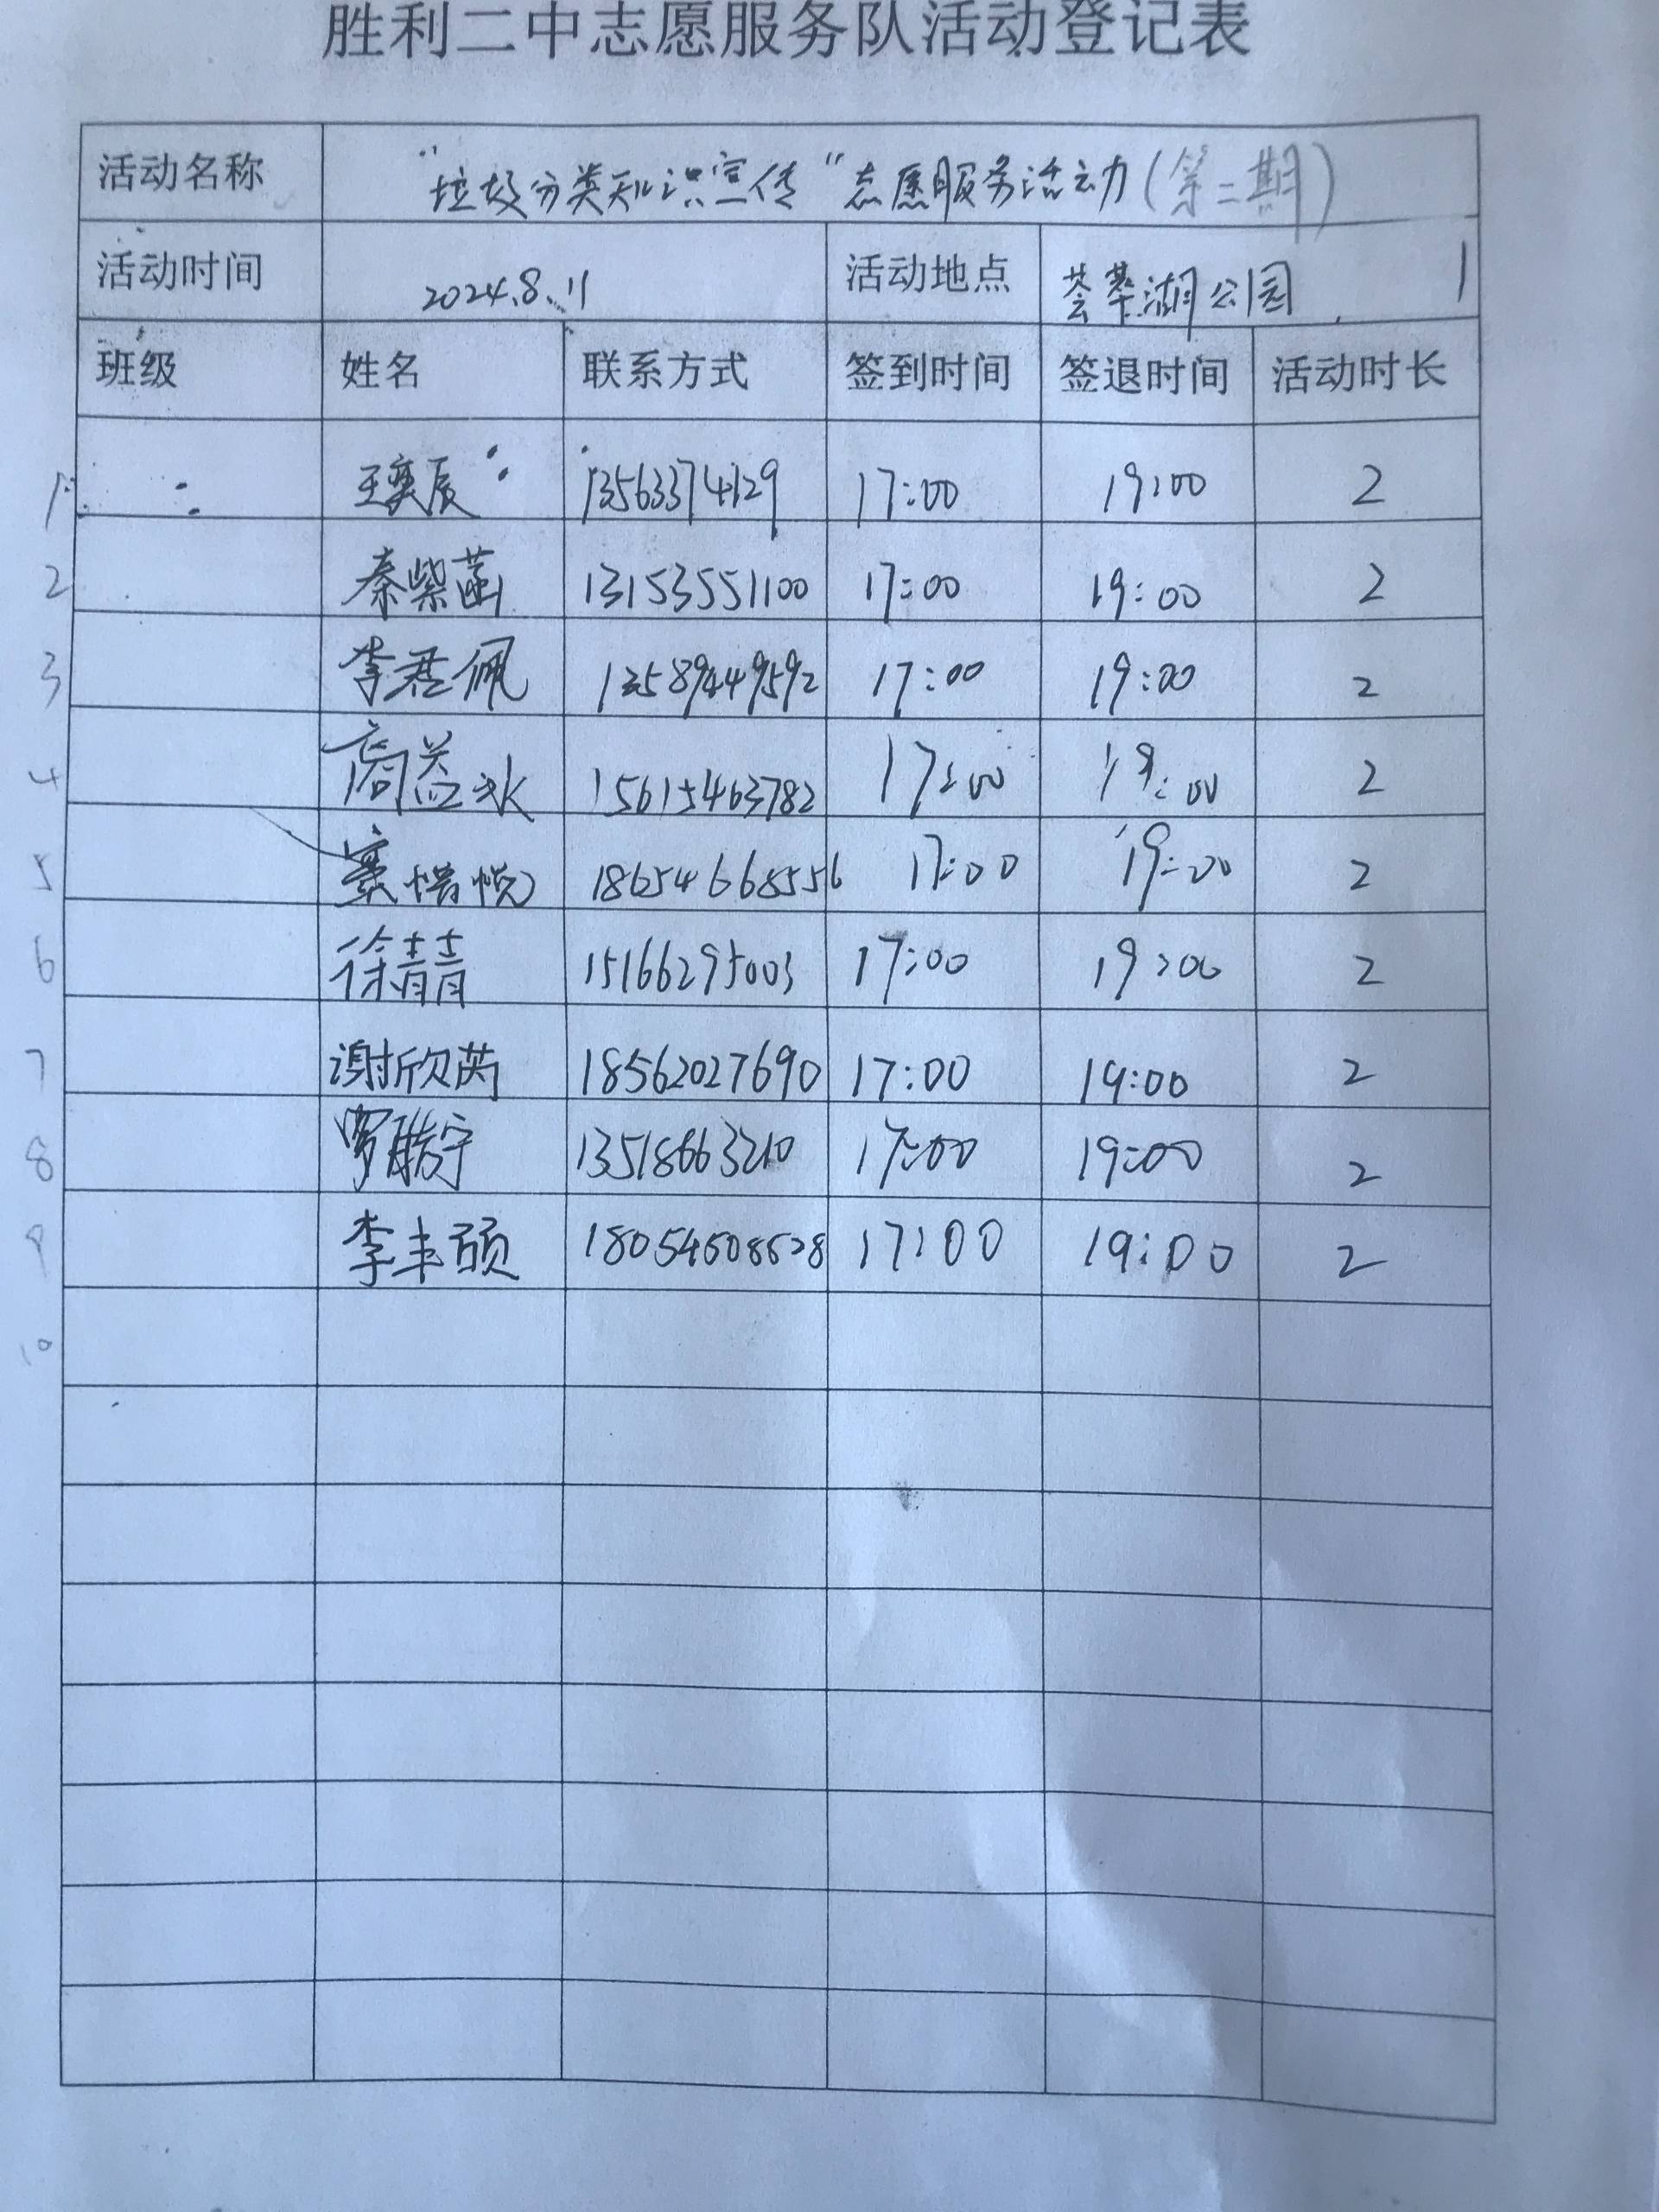 胜利二中志愿服务队活动登记表
活动名称 "垃圾分类知识宣传"志愿服务活动(第二期)
活动时间 2024.8.11 活动地点 荟萃湖公园
班级 姓名 联系方式 签到时间 签退时间 活动时长
1 王奕辰 13563374129 17:00 19:00 2
2 秦紫菡 13153551100 17:00 19:00 2
3 李君佩 13589449592 17:00 19:00 2
4 商益冰 15615463782 17:00 19:00 2
5 悦 18654668556 17:00 19:00 2
6 徐青青 15166295003 17:00 19:00 2
7 谢欣芮 18562027690 17:00 19:00 2
8 罗皓宁 13518663210 17:00 19:00 2
9 李丰硕 17:00 19:00 2
10